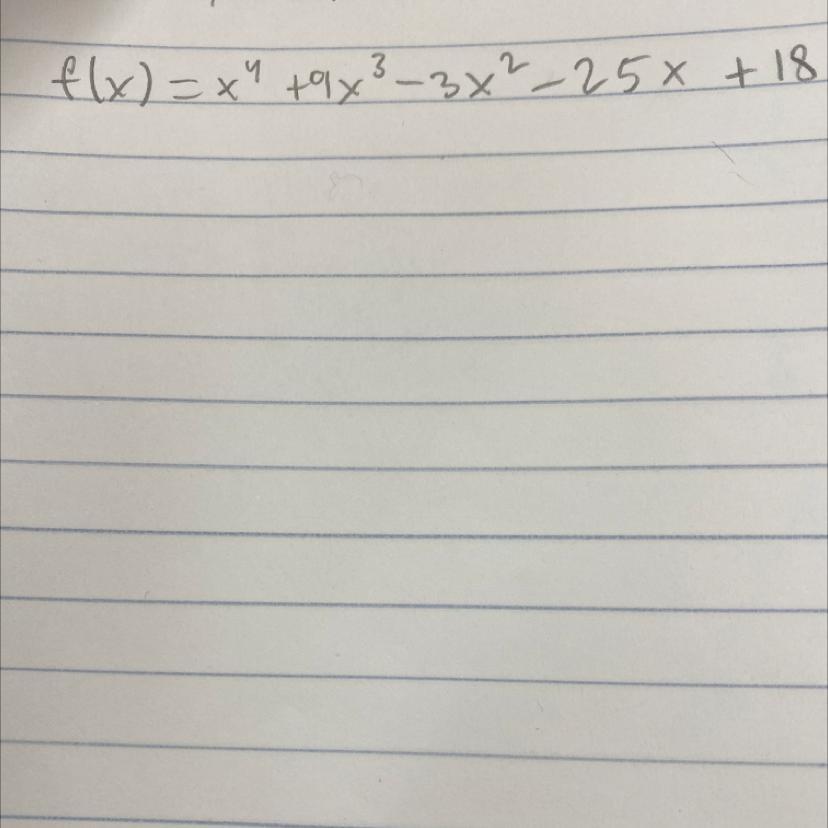 f(x) = x⁴ + 9x³ - 3x² - 25x + 18